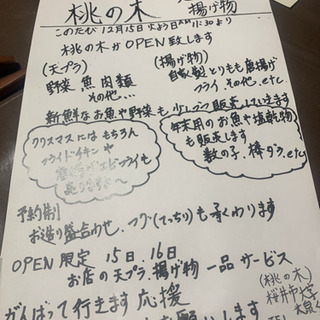 桃の木 揚げ物
このたび12月15日火よう日AM11:30より
桃の木がOPEN致します
(天プラ)
野菜 魚 肉類
その他...
(揚げ物)
自家製とりもも唐揚げ
フライ その他.etc
新鮮なお魚や野菜も少しづつ販売していきます
クリスマスにはもちろん
フライドチキンや
エビフライも
売ります
年末用のお魚や塩乾物
も販売します
数の子、棒ダラ.etc
予約制
お造り盛合わせ、フグ(てっちり)も承くわります
OPEN限定 15日.16日
お店の天プラ.揚げ物一品サービス
がんばって行きます応援
します
(桃の木)
桜井市大字